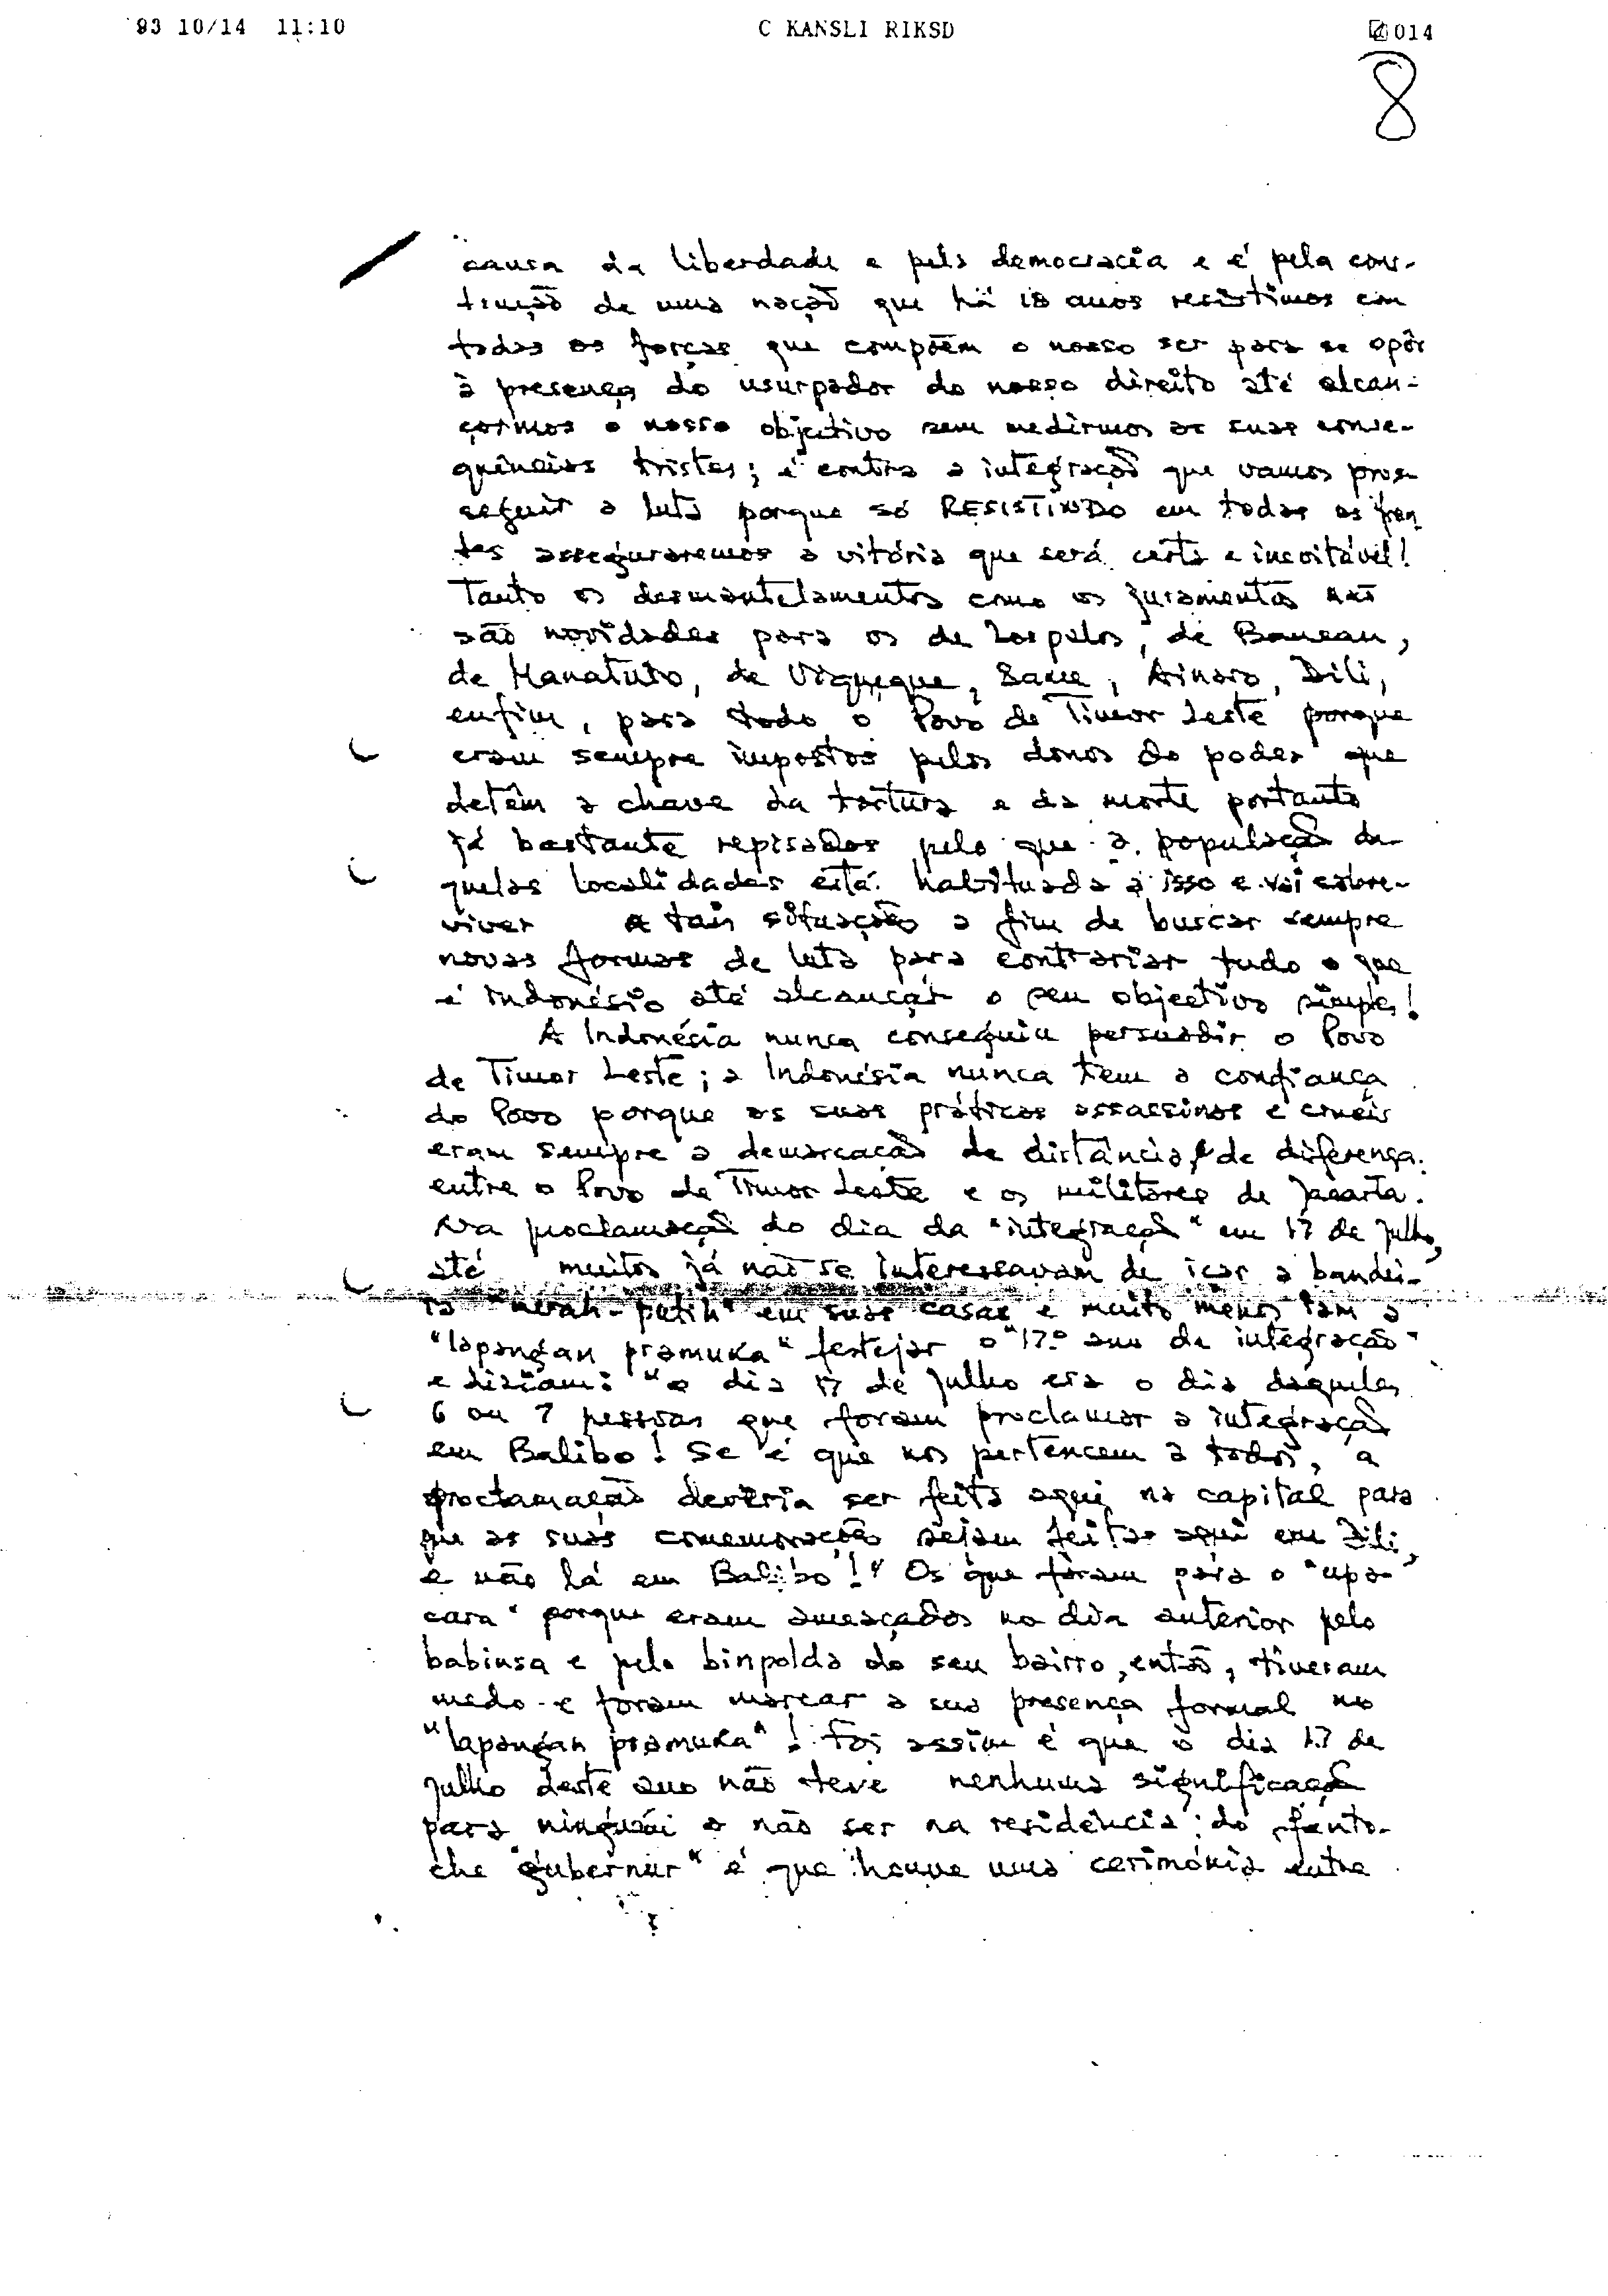 '93 10/14 11:10 C KANSLI RIKSD 014
8
causa da liberdade e pela democracia e é pela cons-
trução de uma nação que há 18 anos resistimos com
todas as forças que compõem o nosso ser para se opôr
à presença do usurpador do nosso direito até alcan-
çarmos o nosso objectivo sem medirmos as suas conse-
quências tristes; é contra a integração que vamos pros-
seguir a luta porque só RESISTINDO em todas as fren
tes asseguraremos a vitória que será certa e inevitável!
Tanto os desmantelamentos como os juramentos não
são novidades para os de Lospalos, de Baucau,
de Manatuto, de Viqueque, Same, Ainaro, Dili,
enfim, para todo o Povo de Timor Leste porque
eram sempre impostos pelos donos do poder que
detêm a chave da tortura e da morte portanto
já bastante repisados pelo que a população da-
quelas localidades está habituada a isso e vai sobre-
viver a tais situações a fim de buscar sempre
novas formas de luta para contrariar tudo o que
é indonésio até alcançar o seu objectivo simples!
A Indonésia nunca conseguiu persuadir o Povo
de Timor Leste; a Indonésia nunca tem a confiança
do Povo porque as suas práticas assassinas e cruéis
eram sempre a demarcação de distância e de diferença
entre o Povo de Timor Leste e os militares de Jacarta.
Na proclamação do dia da "integração" em 17 de Julho,
até muitos já não se interessavam de içar a bandei-
ra "merah-putih" em suas casas e muito menos iam a
"lapangan pramuka" festejar o "17º ano da integração"
e diziam: "o dia 17 de Julho era o dia daqueles
6 ou 7 pessoas que foram proclamar a integração
em Balibo! Se é que nos pertencem a todos, a
proclamação deveria ser feita aqui na capital para
que as suas comemorações sejam feitas aqui em Dili,
e não lá em Balibo!" Os que foram para o "upa-
cara" porque eram ameaçados no dia anterior pelo
babinsa e pelo binpolda do seu bairro, então, tiveram
medo e foram marcar a sua presença formal no
"lapangan pramuka"! Foi assim é que o dia 17 de
Julho deste ano não teve nenhuma significação
para ninguém a não ser na residência do fanto-
che "gubernur" é que houve uma cerimónia entre